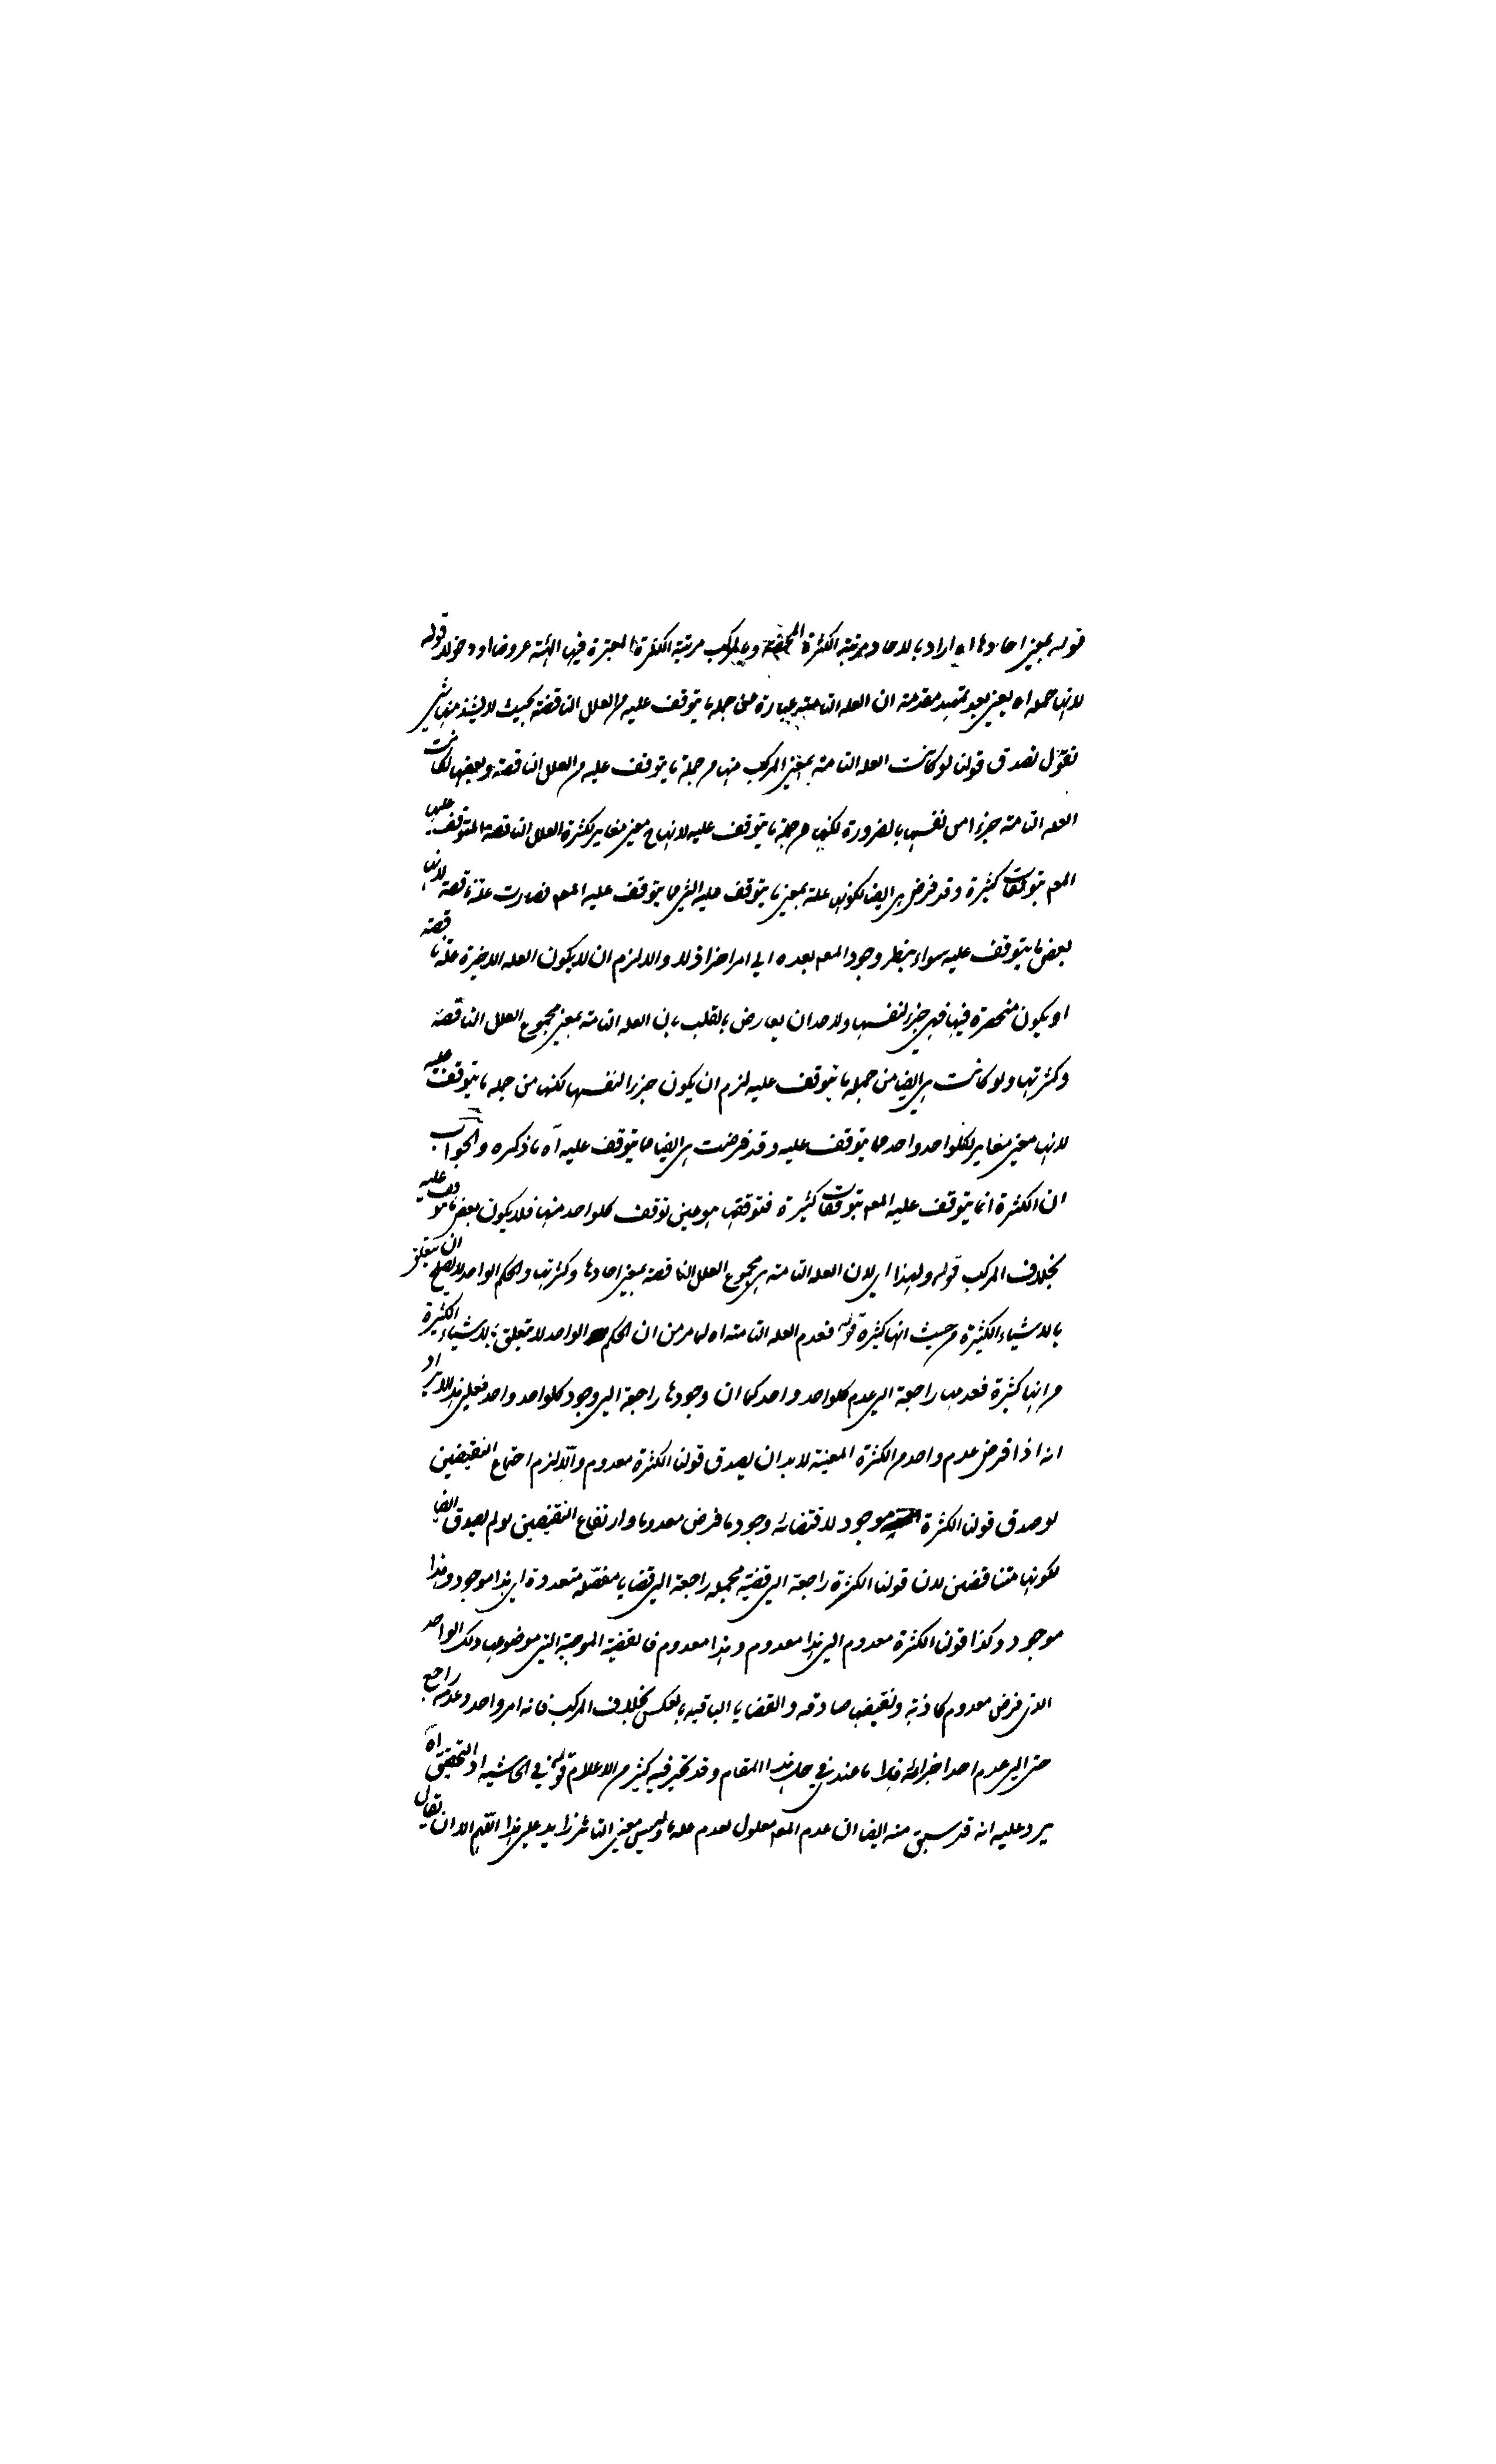 قوله بمعنى احادها اه اراد بالاحاد مرتبة الكثرة المحضة وبالمركب مرتبة الكثرة المعتبرة فيها الهيئة عروضا او دخولا قوله
لانها جملة اه يعنى بعد تمهيد مقدمة ان العلة التامة عبارة عن جملة ما يتوقف عليه من العلل الناقصة بحيث لا يشذ منها شئ
نقول لصدق قولنا لو كانت العلة التامة بمعنى المركب منها من جملة ما يتوقف عليه من العلل الناقصة وبعضها لكانت
العلة التامة جزءا من نفسها بالضرورة لكنها من جملة ما يتوقف عليه لانها ح معنى مغاير لكثرة العلل الناقصة المتوقف عليها
المعم بتوقفات كثيرة وقد فرض هى ايضا لكونها علة بمعنى ما يتوقف عليه الشئ مما يتوقف عليه المعم فصارت علة ناقصة لانها
بعض ما يتوقف عليه سواء ينظر وجود المعم بعده الى امر اخر اولا والا لزم ان لا يكون العلة الاخيرة علة ناقصة
او يكون منحصرة فيها فهى جزء لنفسها ولاحد ان يعارض بالقلب بان العلة التامة بمعنى مجموع العلل الناقصة
وكثرتها ولو كانت هى ايضا من جملة ما يتوقف عليه لزم ان يكون جزء النفسها لكنها من جملة ما يتوقف عليه
لانها معنى مغاير لكلواحد واحد مما يتوقف عليه وقد فرضت هى ايضا مما يتوقف عليه آه ما ذكره والجواب
ان الكثرة انما يتوقف عليه المعم بتوقفات كثيرة فتوقفها هو عين توقف كلواحد منها فلا يكون بعض ما توقف عليه
بخلاف المركب قوله ولهذا اى لان العلة التامة هى مجموع العلل الناقصة بمعنى احادها وكثرتها والحكم الواحد لا يصلح ان يتعلق
بالاشياء الكثيرة من حيث انها كثيرة قوله فعدم العلة التامة اه لما مر من ان الحكم الواحد لا يتعلق بالاشياء الكثيرة
من انها كثيرة فعدمها راجعة الى عدم كلواحد واحد كما ان وجودها راجعة الى وجود كلواحد واحد فعلى هذا لا يراد
انه اذا فرض عدم واحد من الكثرة المعينة لابد ان يصدق قولنا الكثرة معدوم والا لزم اجتماع النقيضين
لو صدق قولنا الكثرة موجود لاقتضائه وجود ما فرض معدوما وارتفاع النقيضين لو لم يصدق ايضا
لكونها متناقضين لان قولنا الكثرة راجعة الى قضية مجملة راجعة الى قضايا مفصلة متعددة اى هذا موجود وهذا
موجود وكذا قولنا الكثرة معدوم الى هذا معدوم وهذا معدوم فالقضية الموجبة التى موضوعها ذلك الواحد
الذى فرض معدوم كاذبة ونقيضها صادقة والقضايا الباقية بالعكس بخلاف المركب فانه امر واحد وعدمه راجع
حتى الى عدم احد اجزائه هذا ما عندى فى حل هذا المقام وقد تحير فيه كثير من الاعلام قوله فى الحاشية اذ التحقيق اه
يرد عليه انه قد سبق منه ايضا ان عدم المعم معلول لعدم علة ما وليس معنى التاثير زايد على هذا اللهم الا ان يقال